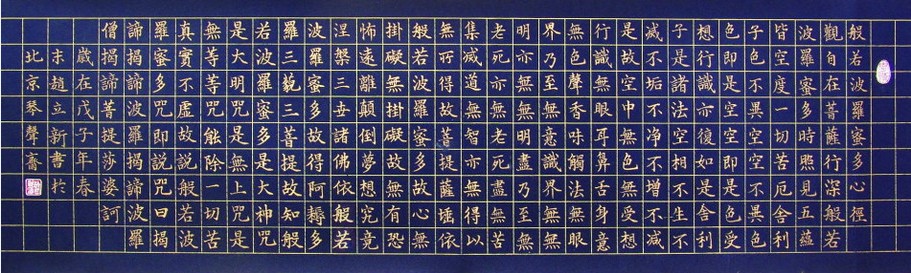 般若波羅蜜多心經
觀自在菩薩行深般若
波羅蜜多時照見五蘊
皆空度一切苦厄舍利
子色不異空空不異色
色即是空空即是色受
想行識亦復如是舍利
子是諸法空相不生不
滅不垢不淨不增不減
是故空中無色無受想
行識無眼耳鼻舌身意
無色聲香味觸法無眼
界乃至無意識界無無
明亦無無明盡乃至無
老死亦無老死盡無苦
集滅道無智亦無得以
無所得故菩提薩埵依
般若波羅蜜多故心無
掛礙無掛礙故無有恐
怖遠離顛倒夢想究竟
涅槃三世諸佛依般若
波羅蜜多故得阿耨多
羅三藐三菩提故知般
若波羅蜜多是大神咒
是大明咒是無上咒是
無等等咒能除一切苦
真實不虛故說般若波
羅蜜多咒即說咒曰揭
諦揭諦波羅揭諦波羅
僧揭諦菩提莎婆訶
歲在戊子年春
末趙立新書於
北京琴聲齋